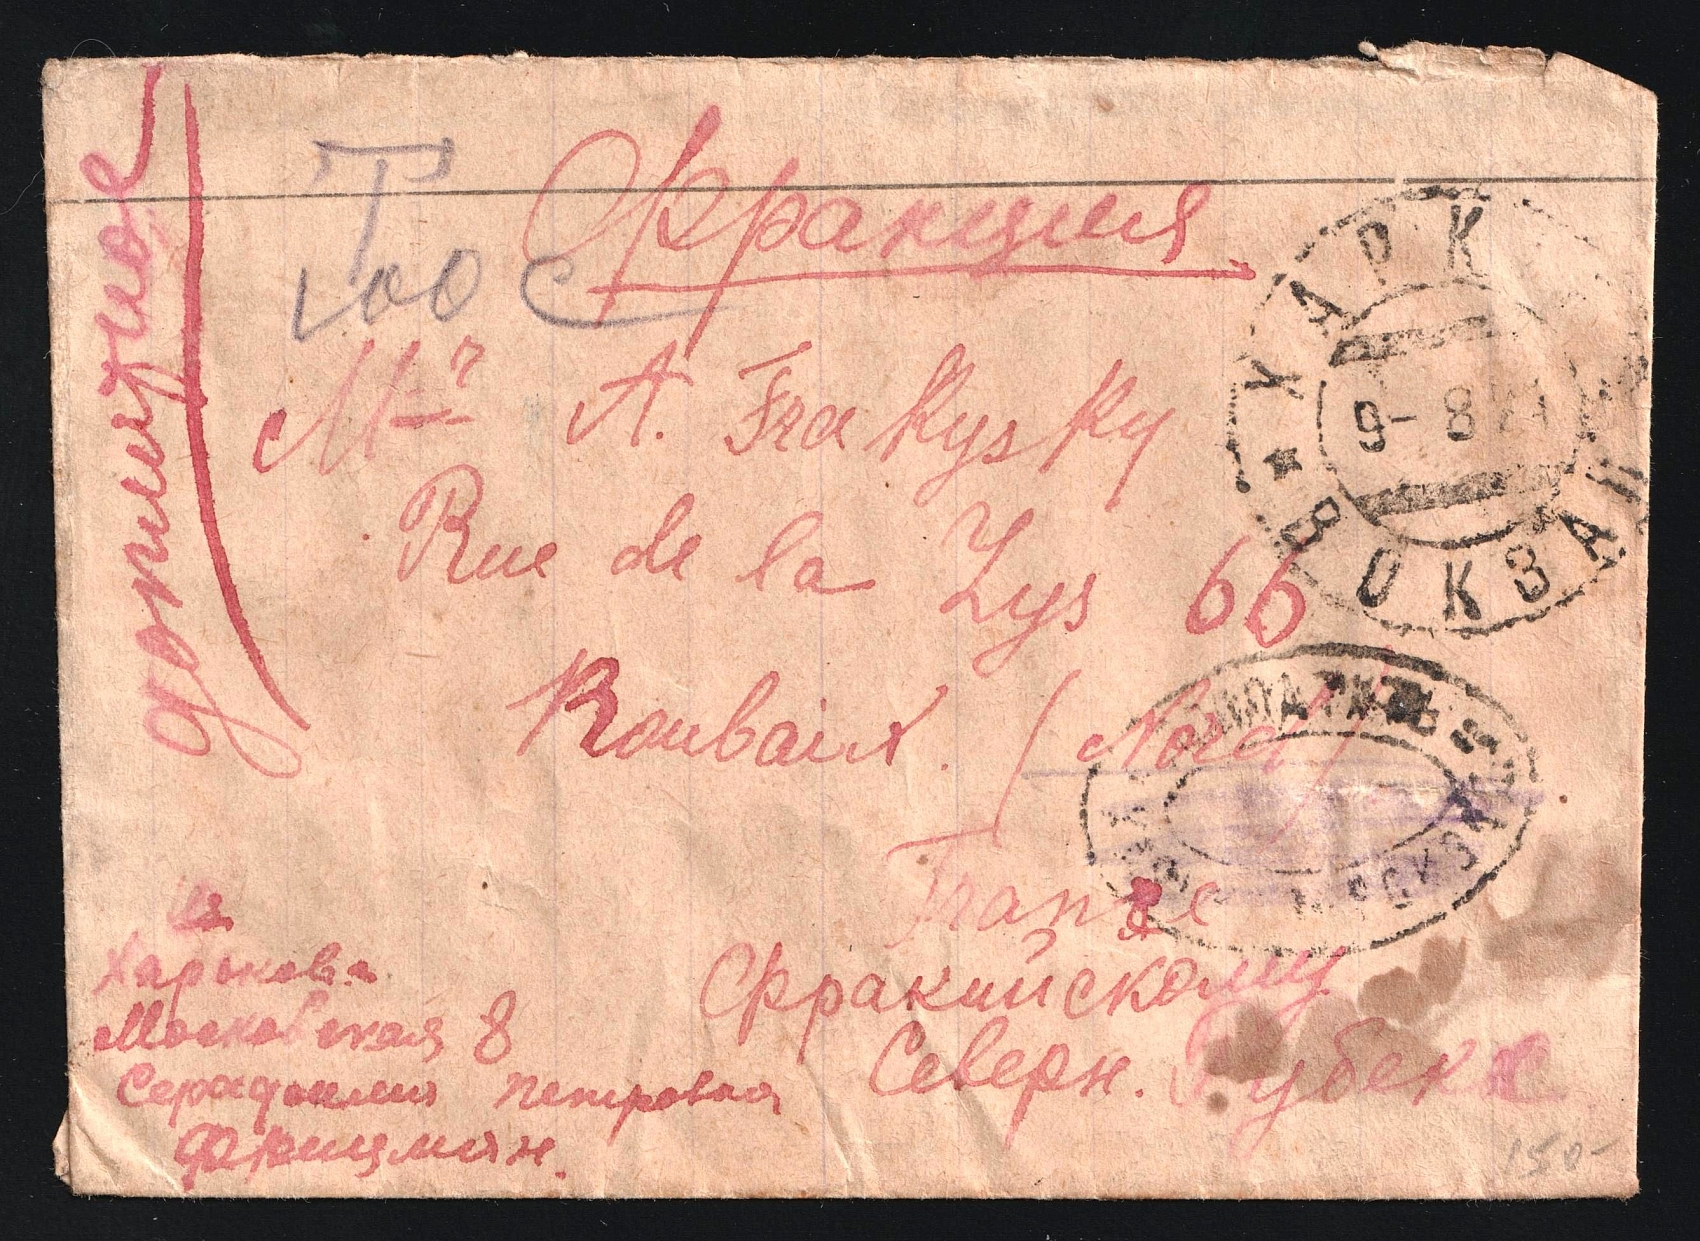 доплатное
T
100 c
Франция
ХАРЬК
9-8 21
ВОКЗАЛ
Mr A. Frakysky
Rue de la Lys 66
Roubaix. (Nord)
France
Фракийскому
Северн. Рубекс
из
Харькова
Московская 8
Серафимия Петровна
Фрицман.
150-